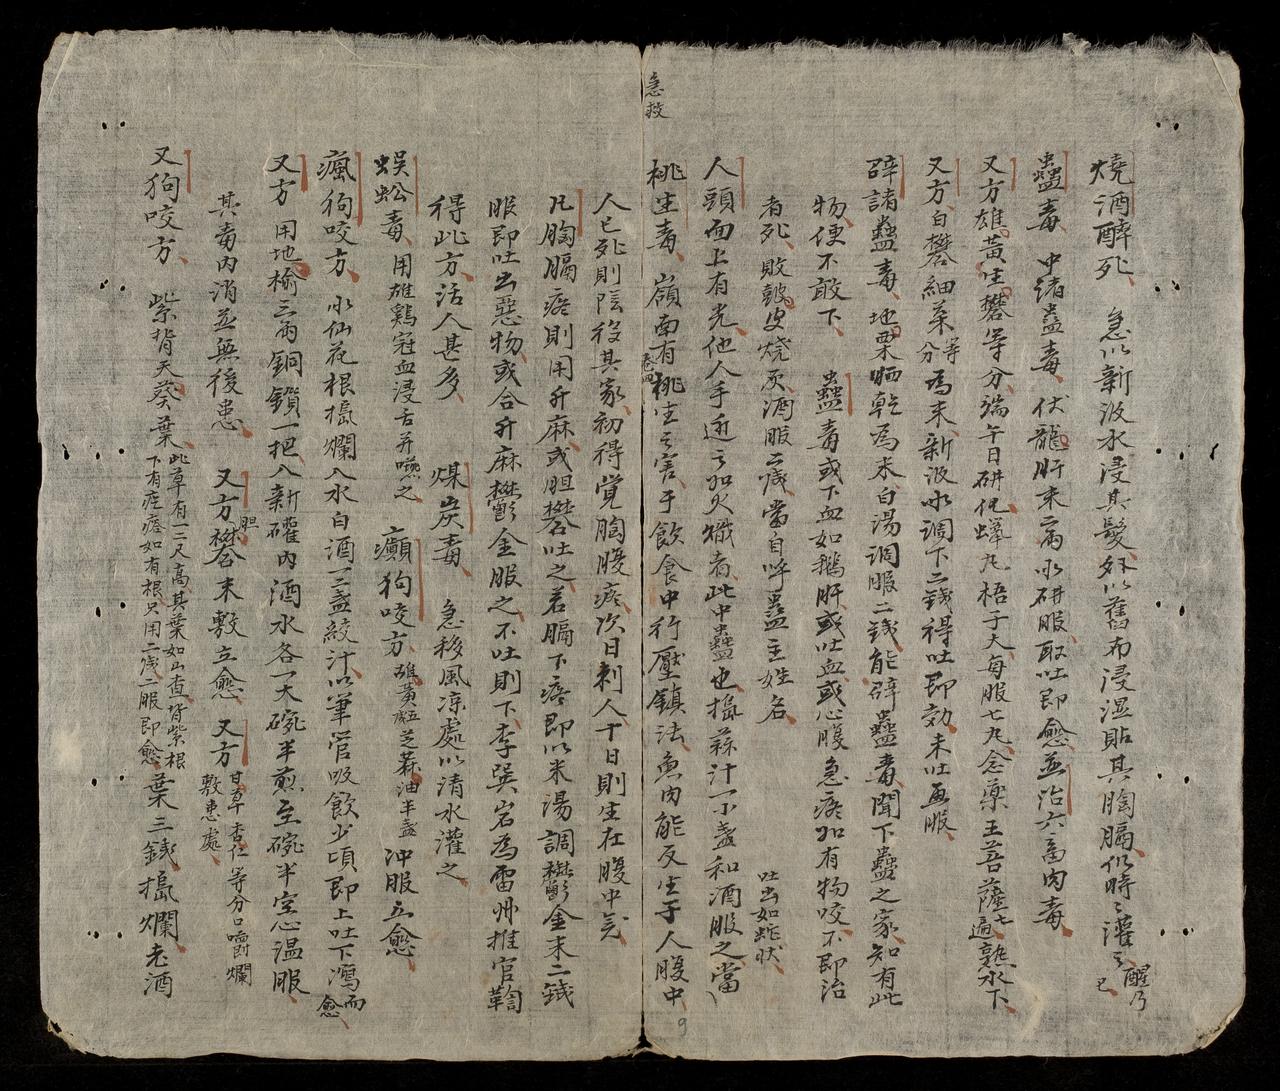 急救
燒酒醉死 急以新汲水浸其髮外以舊布浸湿貼其胸膈仍時〻灌之醒乃已
蠱毒 中諸蠱毒伏龍肝末病水研服取吐即愈並治六畜肉毒
又方雄黃生礬等分端午日研化蠟丸梧子大每服七丸念藥王菩薩七遍熟水下
又方白礬細茶等分為末新汲水調下二錢得吐即効未吐再服
辟諸蠱毒 地栗晒乾為末白湯調服二錢能辟蠱毒聞下蠱之家知有此
物便不敢下 蠱毒或下血如鵝肝或吐血或心腹急疼如有物咬不即治
者死敗皷皮燒灰酒服二錢當自呼蠱主姓名 吐出如蛇狀
人頭面上有光他人手近之如火熾者此中蠱也搗蒜汁一小盞和酒服之當
桃生毒 嶺南有桃生之害于飲食中行壓鎮法魚肉能反生于人腹中
卷四
人已死則陰役其家初得覺胸腹疼次日刺人十日則生在腹中矣
凡胸膈疼則用升麻或胆礬吐之若膈下疼即以米湯調欝金末二錢
服即吐出惡物或合升麻欝金服之不吐則下李巽岩為雷州推官鞫
得此方活人甚多 煤炭毒 急移風凉處以清水灌之
蜈蚣毒 用雄鷄冠血浸舌并嚥之 癲狗咬方 雄黃五芝蔴油半盞沖服立愈
瘋狗咬方 水仙花根搗爛入水白酒一二盞絞汁以筆管吸飲少頃即上吐下瀉而愈
又方 用地榆三兩銅鎖一把入新礶內酒水各一大碗半煎至碗半空心温服
其毒內消並無後患 又方胆礬末敷立愈 又方 甘草杏仁等分口嚼爛敷患處
又狗咬方 紫背天葵葉此草有一二尺高其葉如山查背紫根下有疙瘩如有根只用二錢二服即愈葉三錢搗爛老酒
9